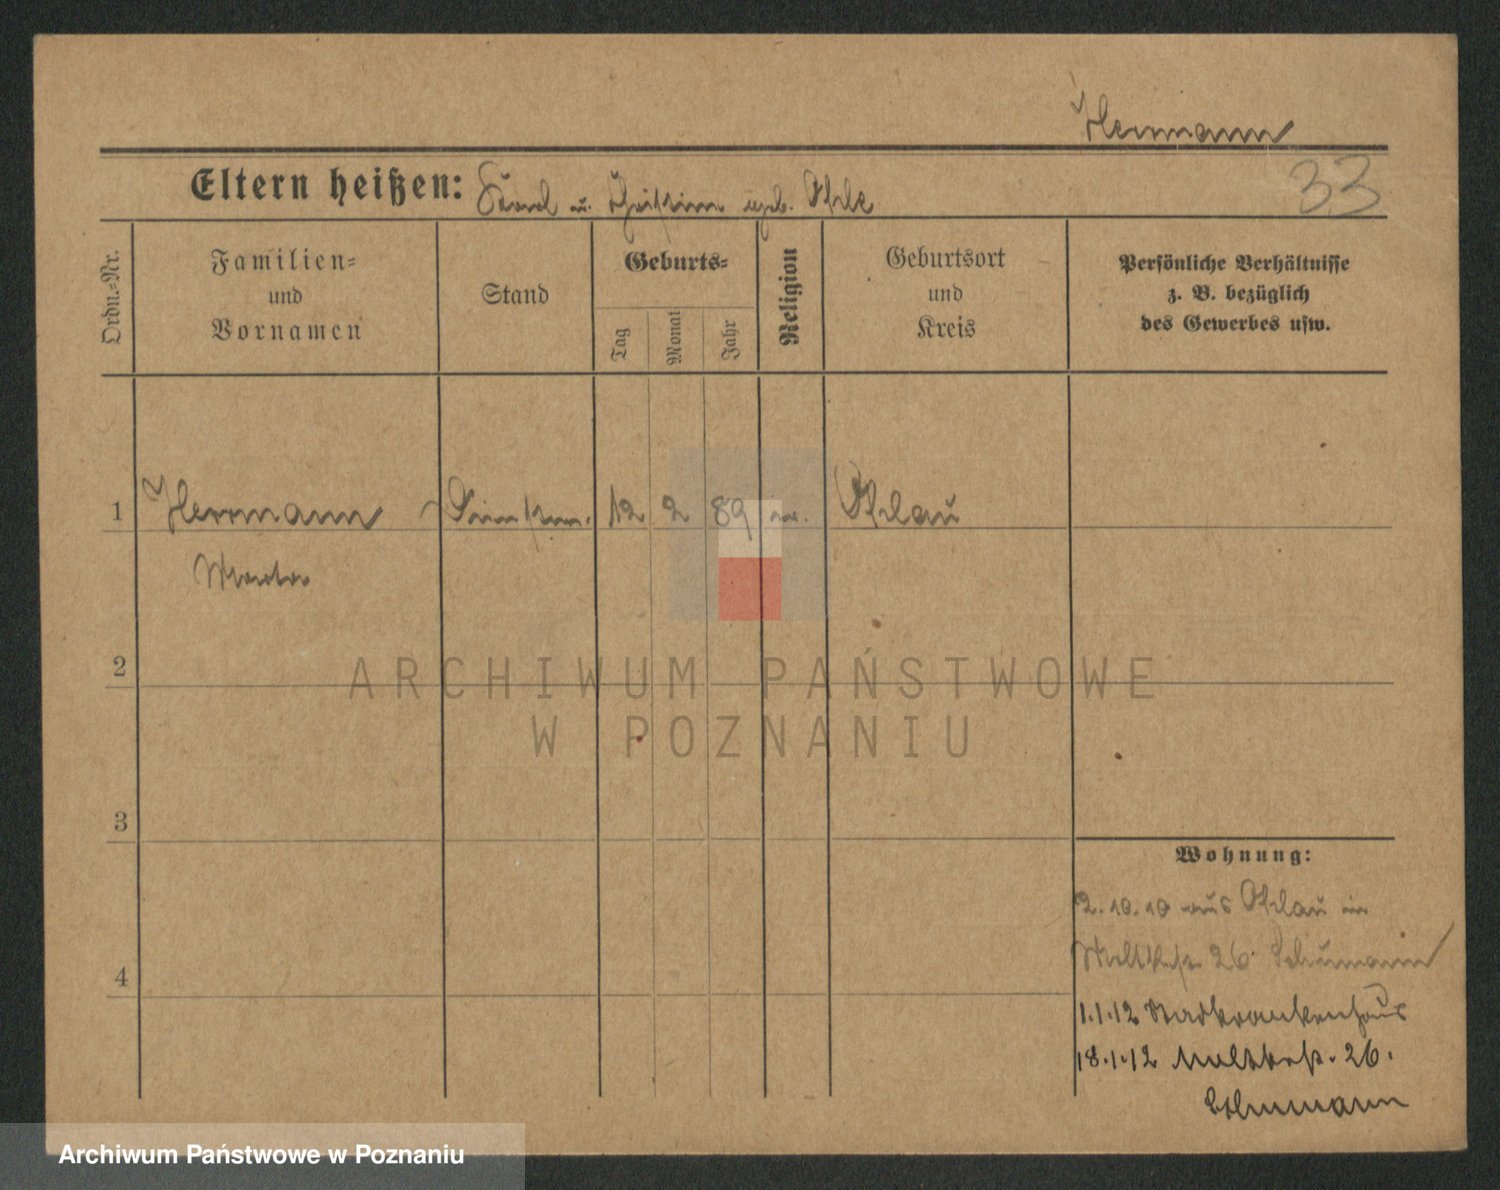 Herrmann
33
Eltern heißen: Karl u. Christine geb.
Ordn.-Nr.
Familien-
und
Vornamen
Stand
Geburts-
Tag
Monat
Jahr
Religion
Geburtsort
und
Kreis
Persönliche Verhältnisse
z. B. bezüglich
des Gewerbes usw.
1 Herrmann Dienstm. 12 2 89 ev. Ohlau
Martha
2
ARCHIWUM PAŃSTWOWE
W POZNANIU
3
Wohnung:
2.10.10 aus Ohlau in
Moltkestr. 26 Schumann
4
1.1.12 Stadtkrankenhaus
18.1.12 Moltkestr. 26.
Schumann
Archiwum Państwowe w Poznaniu